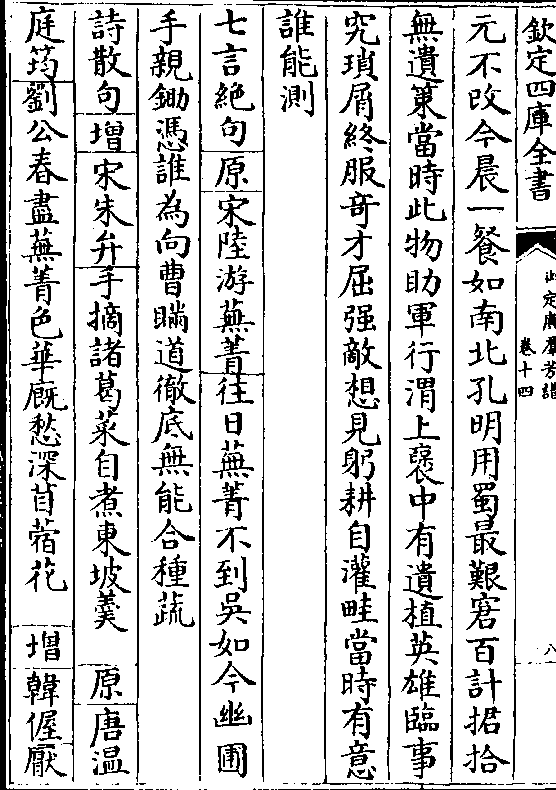 欽定四庫全書
御定廣羣芳譜
卷十四
八
元不改今晨一餐如南北孔明用蜀最艱窘百計捃拾
無遺策當時此物助軍行渭上褒中有遺植英雄臨事
究瑣屑終服奇才屈强敵想見躬耕自灌畦當時有意
誰能測
七言絶句原宋陸游蕪菁往日蕪菁不到吳如今幽圃
手親鋤憑誰為向曹瞞道徹底無能合種蔬
詩散句增宋朱弁手摘諸葛菜自煮東坡羹 原唐温
庭筠劉公春盡蕪菁色華廐愁深苜蓿花 增韓偓厭